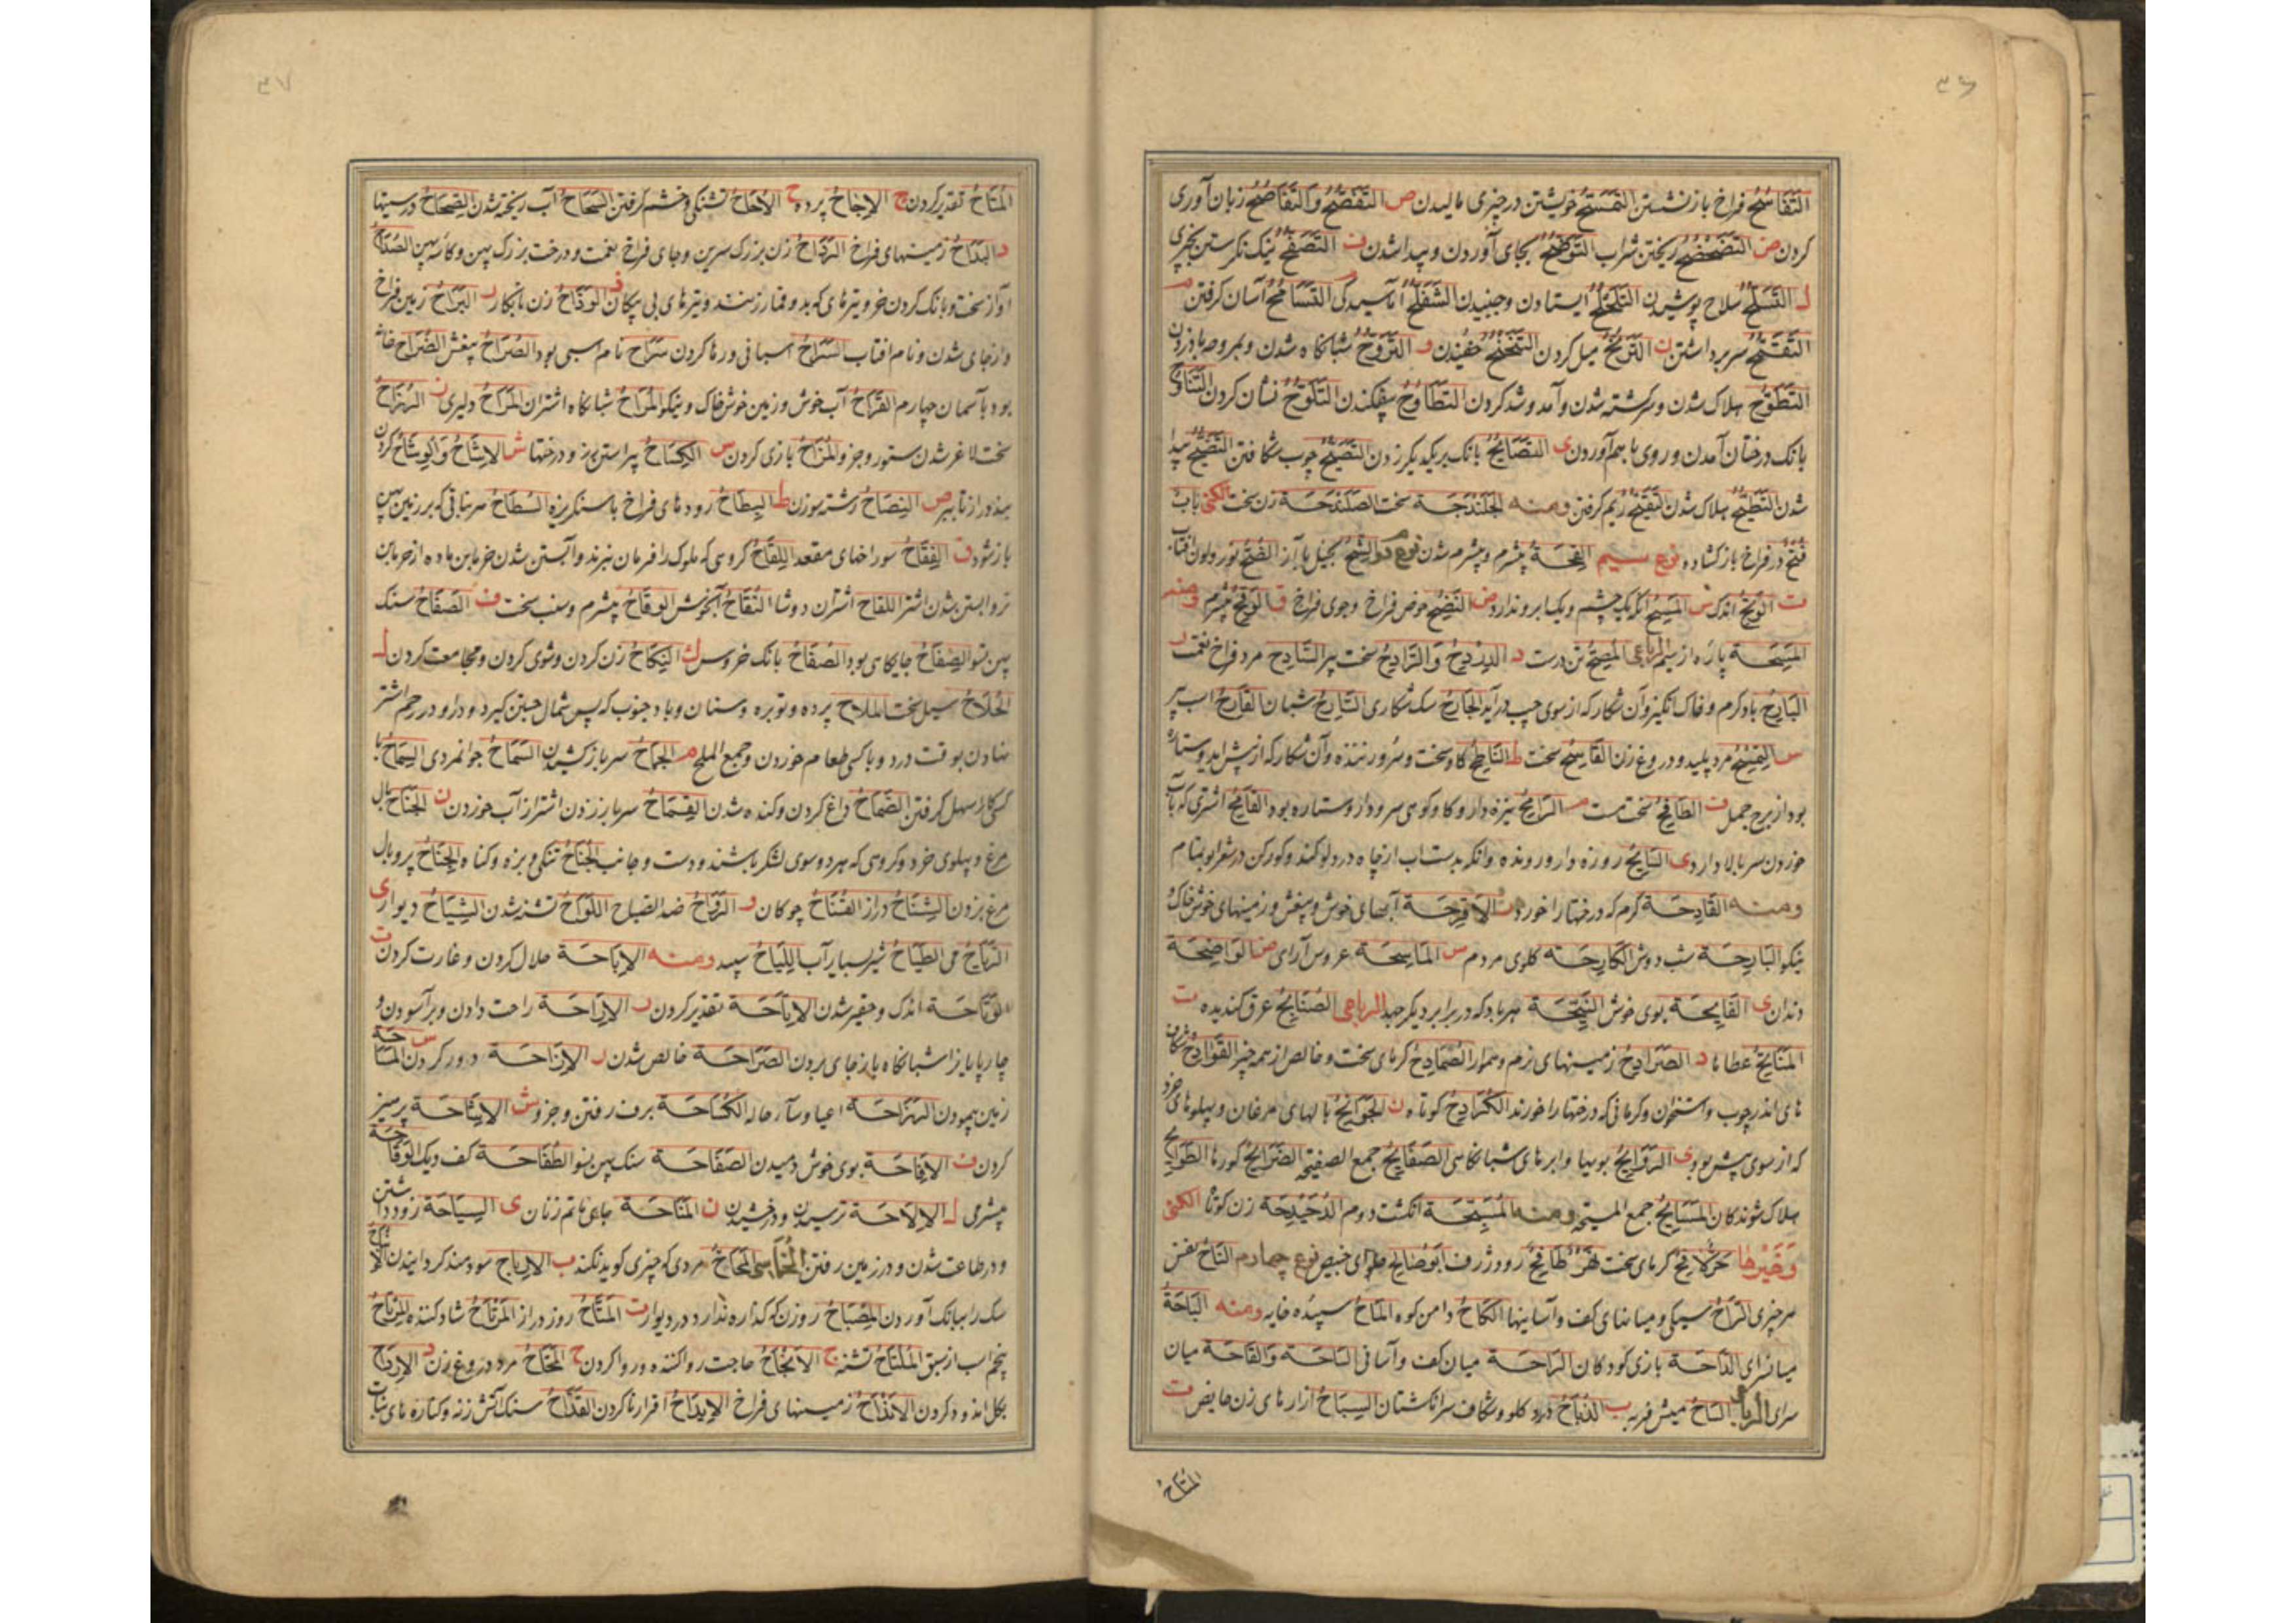 ۳۶
التَّفَاسُحُ فراخ باز نشستن التَّمَسُّحُ خویشتن در چیزی مالیدن ص التَّفَصُّحُ وَالتَّفَاصُحُ زبان آوری
کردن ض التَّضَحْضُحُ ریختن شراب التَّوَضُّحُ بجای آوردن و پیدا شدن ف التَّصَفُّحُ نیک نکرستن بچیزی
ل التَّسَلُّحُ سلاح پوشیدن التَّلَحْلُحُ ایستادن و جنبیدن آماسیدگی التَّسَامُحُ آسان کرفتن
التَّقَمُّحُ سر برداشتن ن التَّرَنُّحُ میل کردن التَّنَحْنُحُ خفیدن و التَّرَوُّحُ شبانکاه شدن و بمروحه باد زدن
التَّطَوُّحُ هلاک شدن و سرکشته شدن و آمد و شد کردن التَّطَاوُحُ بیفکندن التَّلَوُّحُ نشان کردن التَّنَاوُحُ
بانک درختان آمدن و روی با هم آوردن ی التَّصَایُحُ بانک بر یکدیکر زدن التَّصَیُّحُ چوب شکافتن التَّضَیُّحُ پیدا
شدن التَّطَیُّحُ هلاک شدن التَّقَیُّحُ ریم کرفتن ومنه الجَلَنْدَحَة سخت الصَّلَنْدَحَة زن سخت الکنی باب
فُتُحٌ در فراخ باز کشاده نوع سیم القِحَة بیشرم و بیشرم شدن نوع الشُّحُّ بخیل با آز الضِّحُّ نور و لون افتاب
ت الوَتِحُ اندک س المَسِیحُ آنکه یک چشم و یکابرو ندارد ض النَّضِیحُ حوض فراخ و جوی فراخ ق الوَقِحُ بیشرم ومنه
المَسِیحَة پاره از سیم الرباعی المُصَحَّحُ تن درست د الدِّرْدِحُ وَالرَّادِحُ سخت پیر السَّادِح مرد فراخ نعمت ر
البَارِحُ باد کرم و خاک انکیز و آن شکار که از سوی چپ درآید الجَارِحُ سک شکاری السَّارِحُ شبان القَارِحُ اسب پیر
س التِّمْسَحُ مرد پلید و دروغ زن القَاسِحُ سخت ط النَّاطِحُ کاو سخت و سرور زننده و آن شکار که از پیش آید و ستاره
بود از برج حمل ف الطَّافِحُ سخت مست م الرَّامِحُ نیزه دار و کاو کوهی سرو دار و ستاره بود القَامِحُ اشتری که آب
خوردن سر بالا دارد ی السَّایِحُ روزه دار و رونده وانکه بدست آب از چاه در دلو کند و کورکن در شعر
ومنه القَادِحَة کرم که درختها را خورد الأَقْرِحَة آبهای خوش و بیغش و زمینهای خوش خاک
نیکو البَارِحَة شب دوش الکَارِحَة کلوی مردم س المَاسِحَة عروس آرای ض الوَاضِحَة
دندان ی القَایِحَة بوی خوش النَّیِّحَة هر باد که در برابر دیکر جهد الرباعی الصُّنَابِحُ عرق کندیده ت
المَنَایِحُ عطاها د الصَّرَادِحُ زمینهای نرم و هموار الصُّمَادِحُ کرمای سخت و خالص از همه چیز القَوَادِحُ شکاف
های اندر چوب و استخوان و کرمانی که درختها را خورند الکُرَادِحُ کوتاه ن الجَوَانِحُ بالهای مرغان و پهلوهای خرد
که از سوی پیش بود ی الرَّوَایِحُ بویها و ابرهای شبانکاهی الصَّفَایِحُ جمع الصفیحة الضَّرَایِحُ کورها الطَّوَایِحُ
هلاک شوندکان المَسَایِحُ جمع المسیحة ومنه المُسَبِّحَة انکشت دوم الدُّحَیْدِحَة زن کوتاه الکنی
وَغَیْرُها کرمای سخت نَهْرٌ طَافِحٌ رود ژرف أبوصَالِح حلوای خبیص نوع چهارم النَّاحُ نفس
هر چیزی الرَّاحُ سیکی و میانهای کف و آسانیها الکَاحُ دامن کوه المَاحُ سپیده خایه ومنه البَاحَةُ
میان سرای الدَّاحَة بازی کودکان الرَّاحَة میان کف و آسانی السَّاحَة وَالقَاحَة میان
سرای الرباعی السَّاحُ میش فربه ب الذُّبَاحُ درد کلو و شکاف سر انکشتان السِّبَاحُ ازارهای زن حایض ت
المُتَاحُ
۳۷
المُتَاحُ تقدیر کردن ج الإجَاحُ پرده ح الأُحَاحُ تشنکی و خشم کرفتن السَّحَاحُ آب ریخته شدن الصِّحَاحُ درستها
د البَدَاحُ زمینهای فراخ الرَّدَاحُ زن بزرک سرین و جای فراخ نعمت و درخت بزرک پهن و کاسه پهن الصُّدَاحُ
آواز سخت و بانک کردن خر و تیرهای که بدو قمار زنند و تیرهای بی پیکان ذ الوَذَاحُ زن نابکار ر البَرَاحُ زمین فراخ
و از جای شدن و نام افتاب السَّرَاحُ آسانی و رها کردن سَرَاح نام اسبی بود الصُرَاحُ بیغش الضُرَاحُ خانه
بود بآسمان چهارم القَرَاحُ آب خوش و زمین خوش خاک و نیکو المُرَاحُ شبانکاه اشتران المَرَاحُ دلیری ز الهُزَاحُ
سخت لاغر شدن ستور و جز او المُزَاحُ بازی کردن س الکِسَاحُ پیراستن رز و درختها ش الإشَاحُ وَالوِشَاحُ کردن
بند و راز تا بپیر ص النِّصَاحُ رشته سوزن ط البِطَاحُ رودهای فراخ با سنکریزه السُّطَاحُ هر نباتی که بر زمین پهن
باز شود ق الفِقَاحُ سوراخهای مقعد اللَّقَاحُ کروهی که ملوک را فرمان نبرند و آبستن شدن خرمابن ماده از خرمابن
نر و ابستن شدن اشتر اللقاح اشتران دوشا النُّقَاحُ آبخوش الوَقَاحُ بیشرم و سنب سخت ف الصُفَّاحُ سنک
پهن تنو الصِّفَاحُ جایکاهی بود الصُقَاحُ بانک خروس ک النِّکَاحُ زن کردن و شوی کردن و مجامعت کردن ل
الجُلَاحُ سیل سخت الملاح پرده و توبره و سنان و باد جنوب که پس شمال جستن کیرد و دارو در رحم اشتر
نهادن بوقت درد و با کسی طعام خوردن و جمع الملح م الجِمَاحُ سر باز کشیدن السَّمَاحُ جوانمردی السِّمَاحُ با
کسی کار سهل کرفتن الصُّمَاحُ داغ کردن و کنده شدن القِمَاحُ سر باز زدن اشتر از آب خوردن ن الجَنَاحُ بال
مرغ و پهلوی خرد و کروهی که بهر دو سوی لشکر باشند و دست و جانب الجُنَاحُ تنکی و بزه و کناه الجِنَاحُ پر و بال
مرغ بزدن الشِّنَاحُ دراز الفُنَّاحُ چوکان و الرَّوَاحُ ضد الصباح اللُّوَاحُ تشنه شدن الشِّیَاحُ دیوار ی
الرِّیَاحُ می الطیَاحُ شیر بسیار آب اللِّیَاحُ سپید ومنه الإبَاحَة حلال کردن و غارت کردن ت
الوَتَاحَة اندک و حقیر شدن الإتَاحَة تقدیر کردن ر الإرَاحَة راحت دادن و برآسودن و
چارپایانرا شبانکاه باز جای بردن الصَّرَاحَة خالص شدن ز الإزَاحَة دور کردن س المِسَاحَة
زمین پیمودن الهُزَاحَة اعیا و سآر حاله الکُسَاحَة برف رفتن و جز او ش الإشَاحَة پرهیز
کردن ف الإفَاحَة بوی خوش دمیدن الصَفَاحَة سنک پهن تنو الطُفَاحَة کف دیک الوَقَاحَة
بیشرمی ل الإلَاحَة ترسیدن و درخشیدن ن المَنَاحَة جای ماتم زنان ی السِیَاحَة روزه داشتن
و در طاعت شدن و در زمین رفتن الخُماسی مردی که چیزی کوید نکند ب الإرباح سودمند کردانیدن
سک را ببانک آوردن المِصْبَاحُ روزن که کذاره ندارد در دیوار ت المَتَّاحُ روز دراز المُرْتَاحُ شاد کننده المُرْتَاحُ
پنجم اسب از سبق المُلْتَاحُ تشنه ج الإنْجَاحُ حاجت روا کننده و روا کردن ح مرد دروغ زن د الإرْدَاحُ
بکل اندود کردن الأنْدَاحُ زمینهای فراخ الإبدَاحُ اقرارنا کردن القَدَّاحُ سنک آتش زنه و کنارهای نبات